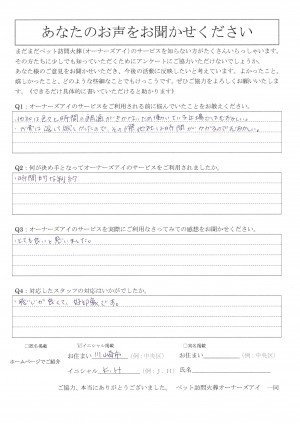 あなたのお声をお聞かせください
まだまだペット訪問火葬(オーナーズアイ)のサービスを知らない方がたくさんいらっしゃいます。
その方たちに少しでも知っていただくためにアンケートにご協力いただけないでしょうか。
あなた様のご意見をお聞かせいただき、今後の活動に反映したいと考えています。よかったこと、
嬉しかったこと、どのような些細なことでもけっこうです。ぜひご協力をよろしくお願いいたしま
す。《できるだけ具体的に書いていただけると助かります》
Q1:オーナーズアイのサービスをご利用される前に悩んでいたことをお教えください。
Q2:何が決め手となってオーナーズアイのサービスをご利用されましたか。
・時間的な制約
Q3:オーナーズアイのサービスを実際にご利用なさってみての感想をお聞かせください。
・とても良いと思いました。
Q4:対応したスタッフの対応はいかがでしたか。
ホームページでご紹介
□匿名掲載
☑イニシャル掲載
□実名掲載
お住まい 川崎市 (例:中央区)
お住まい (例:中央区)
イニシャル K.H (例:J.H)
氏名
ご協力、本当にありがとうございました。 ペット訪問火葬オーナーズアイ 一同